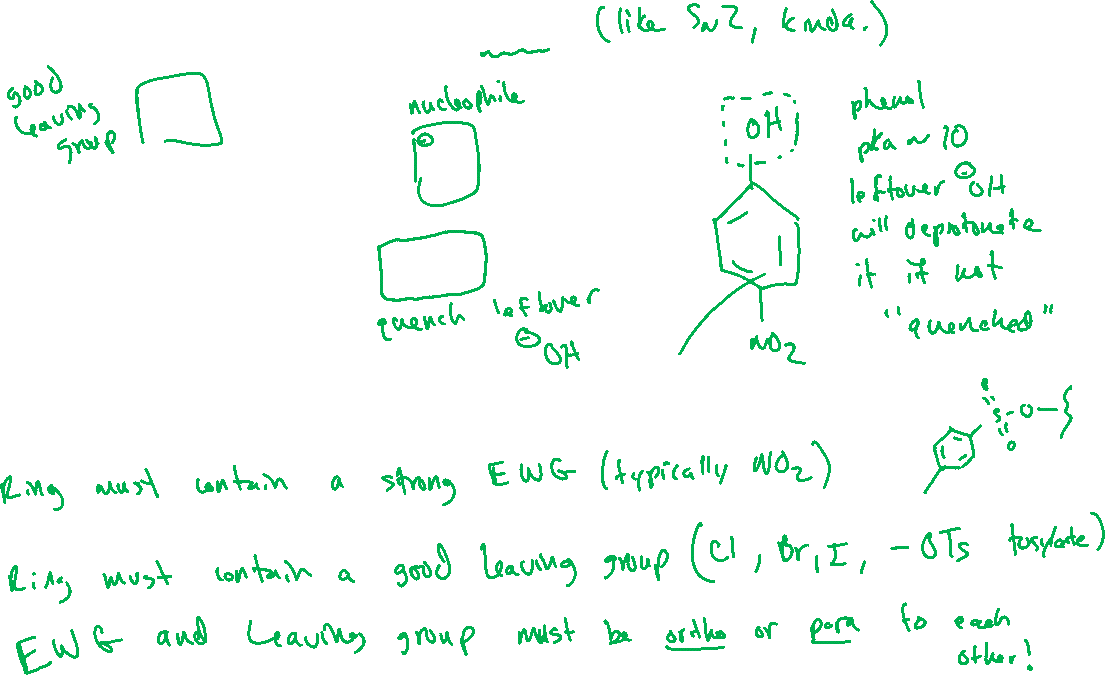 (like SN2, kinda.)
good
leaving
group
nucleophile
⊖
quench leftover
⊖OH
OH
NO2
phenol
pka ~ 10
leftover ⊖OH
will deprotonate
it if not
"quenched"
S-O-
O
Ring must contain a strong EWG (typically NO2)
Ring must contain a good leaving group (Cl, Br, I, -OTs tosylate)
EWG and leaving group must be ortho or para to each
other!